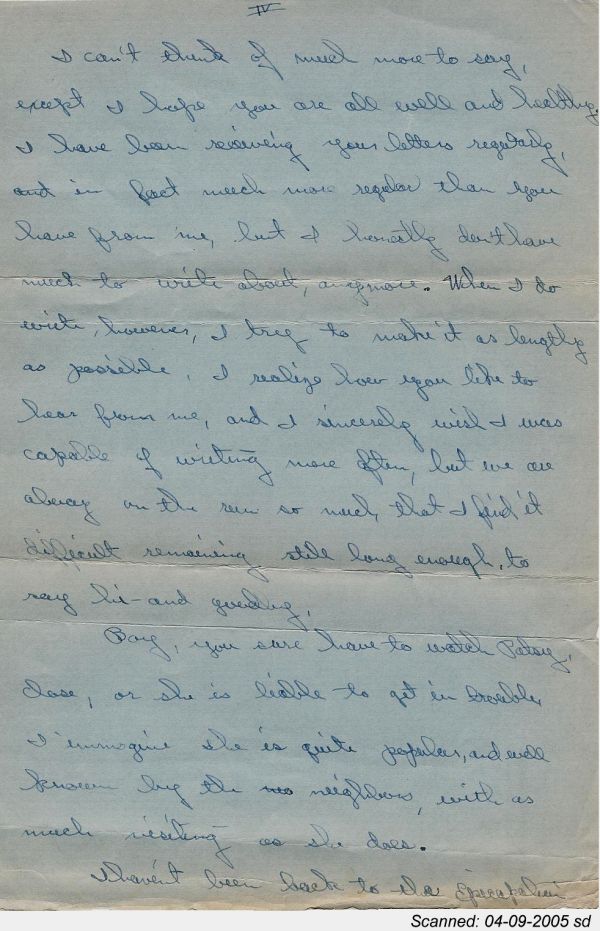 IV
I can't think of much more to say,
except I hope you are all well and healthy.
I have been receiveing your letters regularly,
and in fact much more regular than you
have from me, but I honestly don't have
much to write about, anymore. When I do
write, however, I try to make it as lengthy
as possible. I realize how you like to
hear from me, and I sincerely wish I was
capable of writing more often, but we are
alway on the run so much, that I find it
difficult remaining still long enough, to
say hi - and goodby.
Boy, you sure have to watch Patsy,
close, or she is liable to get in trouble,
I immagine she is quite popular, and well
known by the no neighbors, with as
much visiting as she does.
I haven't been back to the
Scanned: 04-09-2005 sd